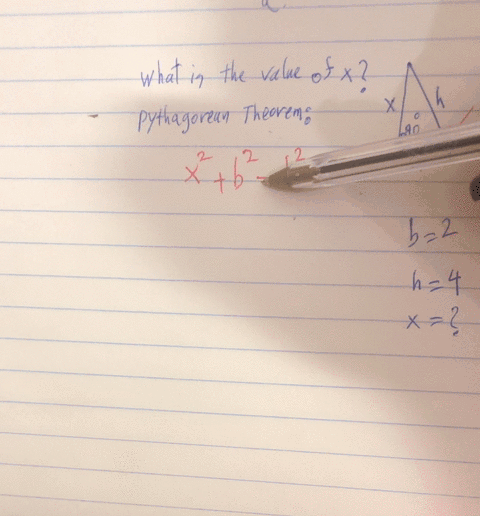 What is the value of x?
Pythagorean Theorem:
x h
90°
x² + b² 
b=2
h=4
x=?